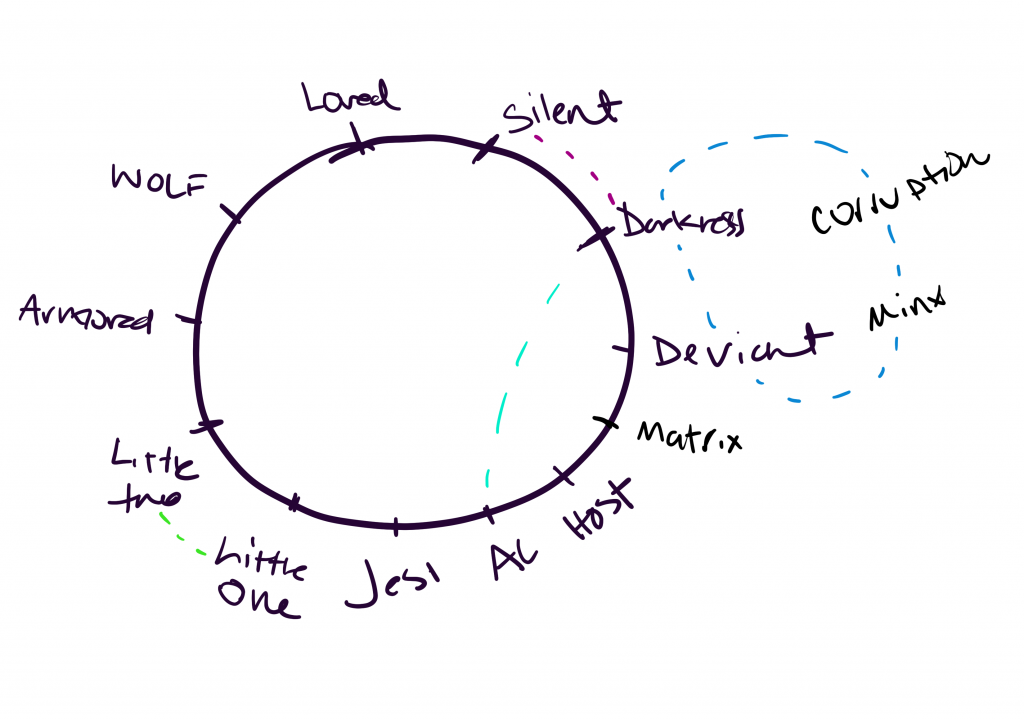 Loved
Silent
WOLF
Darkness
Corruption
Armored
Minx
Deviant
Matrix
Little
two
Host
Little
One
Jesi
AL